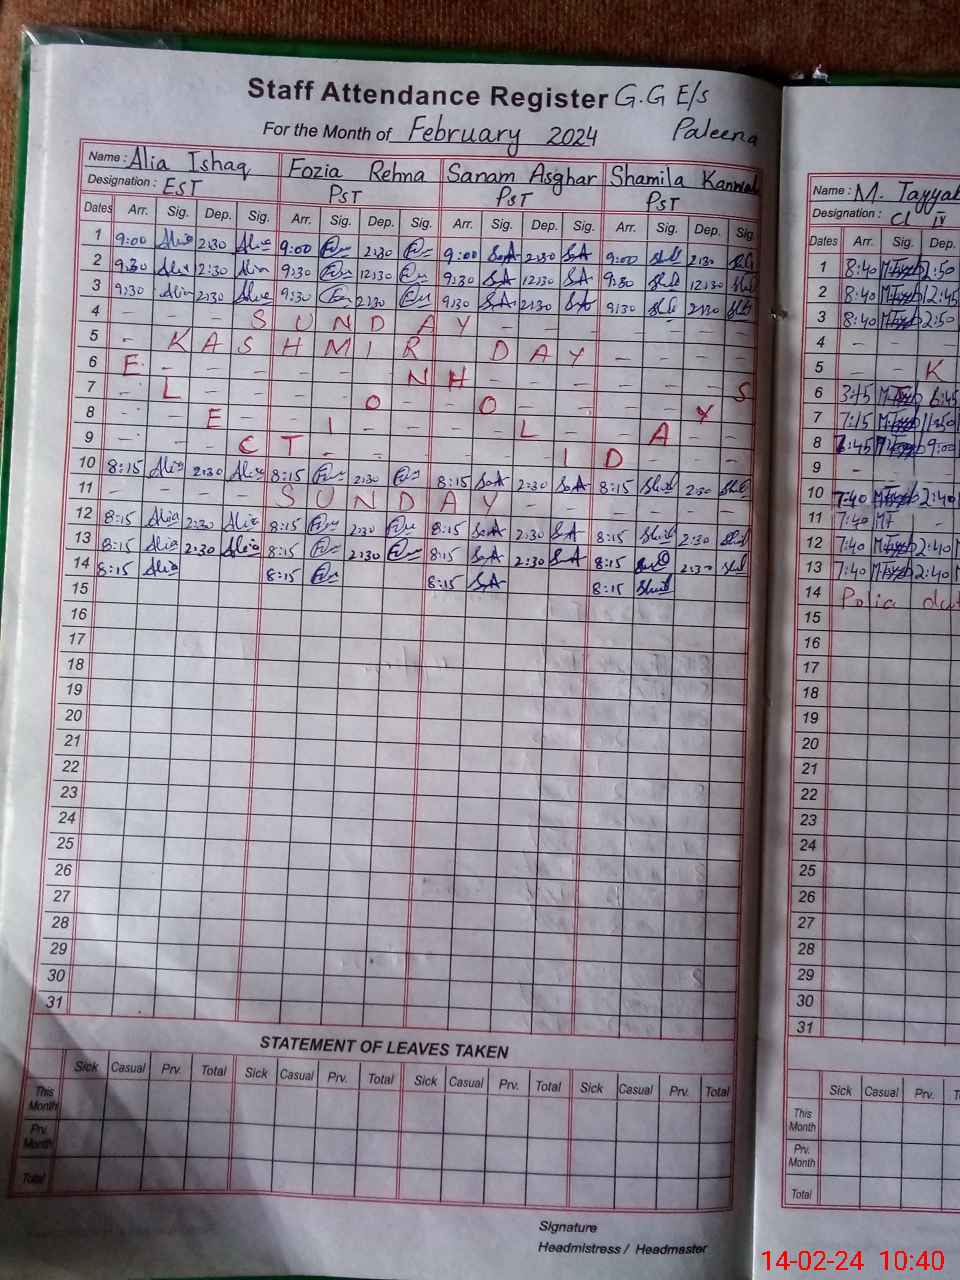 Staff Attendance Register G.G E/s
For the Month of February 2024 Paleena
Name : Alia Ishaq Fozia Rehna Sanam Asghar Shamila Kanwal
Designation : EST PST PST PST
Dates Arr. Sig. Dep. Sig. Arr. Sig. Dep. Sig. Arr. Sig. Dep. Sig. Arr. Sig. Dep. Sig.
1 9:00 Alia 2:30 Alia 9:00 2:30 9:00 S.A 2:30 S.A 9:00 2:30
2 9:30 Alia 2:30 Alia 9:30 12:30 9:30 S.A 12:30 S.A 9:30 12:30
3 9:30 Alia 2:30 Alia 9:30 2:30 9:30 S.A 2:30 S.A 9:30 2:30
4 SUNDAY
5 KASHMIR DAY
6 E N H
7 L O O S
8 E I L A Y
9 C T I D
10 8:15 Alia 2:30 Alia 8:15 2:30 8:15 S.A 2:30 S.A 8:15 2:30
11 SUNDAY
12 8:15 Alia 2:30 Alia 8:15 2:30 8:15 S.A 2:30 S.A 8:15 2:30
13 8:15 Alia 2:30 Alia 8:15 2:30 8:15 S.A 2:30 S.A 8:15 2:30
14 8:15 Alia 8:15 8:15 S.A 8:15
15
16
17
18
19
20
21
22
23
24
25
26
27
28
29
30
31
STATEMENT OF LEAVES TAKEN
Sick Casual Prv. Total Sick Casual Prv. Total Sick Casual Prv. Total Sick Casual Prv. Total
This Month
Prv. Month
Total
Signature
Headmistress / Headmaster
Name : M. Tayyab
Designation : Cl IV
Dates Arr. Sig. Dep.
1 8:40 2:50
2 8:40 12:45
3 8:40 2:50
4
5 K
6 6:45
7 7:15 11:50
8 9:00
9
10 7:40 2:40
11 7:40
12 7:40 2:40
13 7:40 2:40
14 Polio
15
16
17
18
19
20
21
22
23
24
25
26
27
28
29
30
31
Sick Casual Prv.
This Month
Prv. Month
Total
14-02-24 10:40